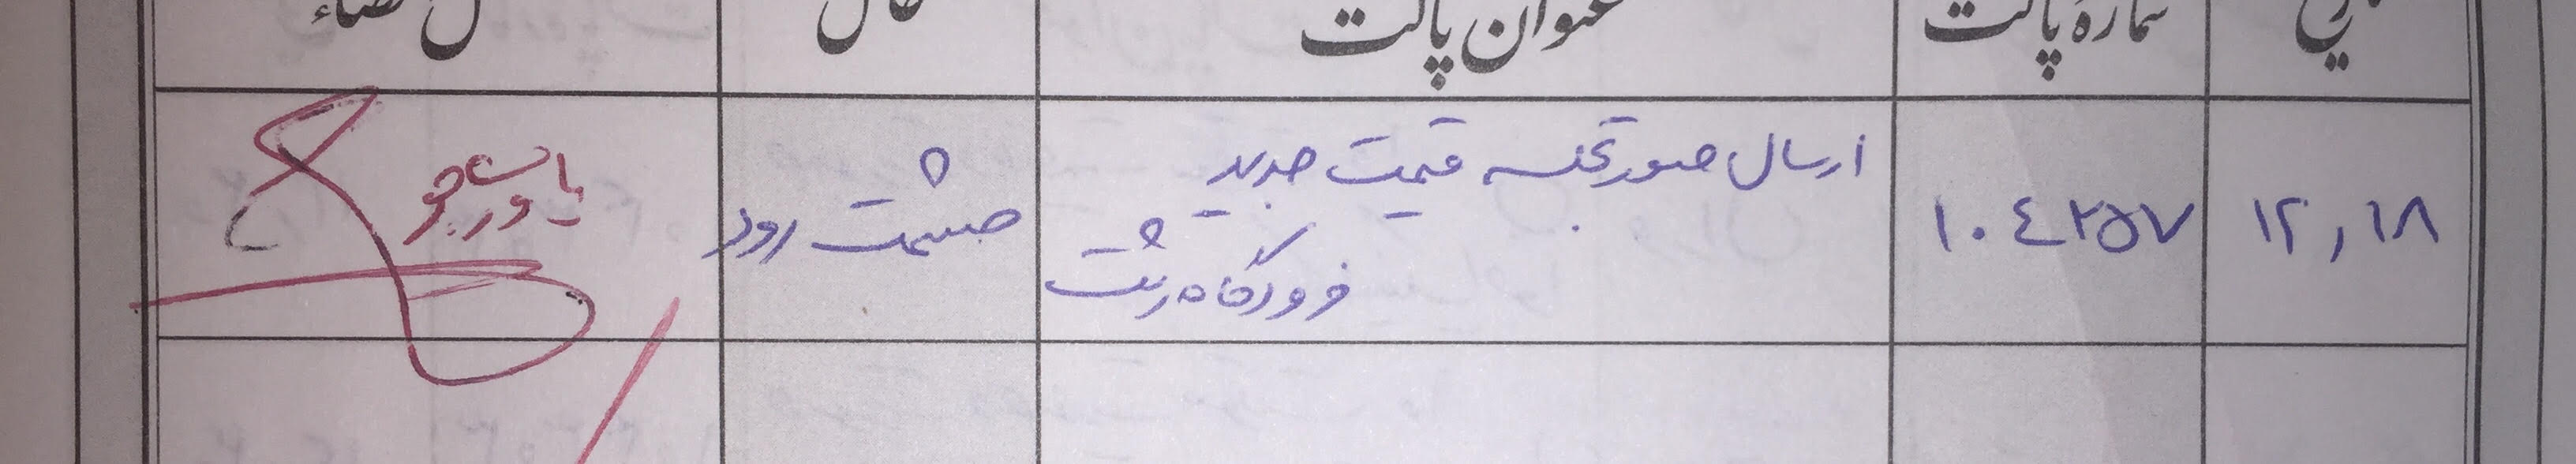 شماره پاکت
عنوان پاکت
۱۲,۱۸
۱۰۴۲۵۷
ارسال صورتجلسه قیمت جدید
فرودگاه رشت
هشت رود